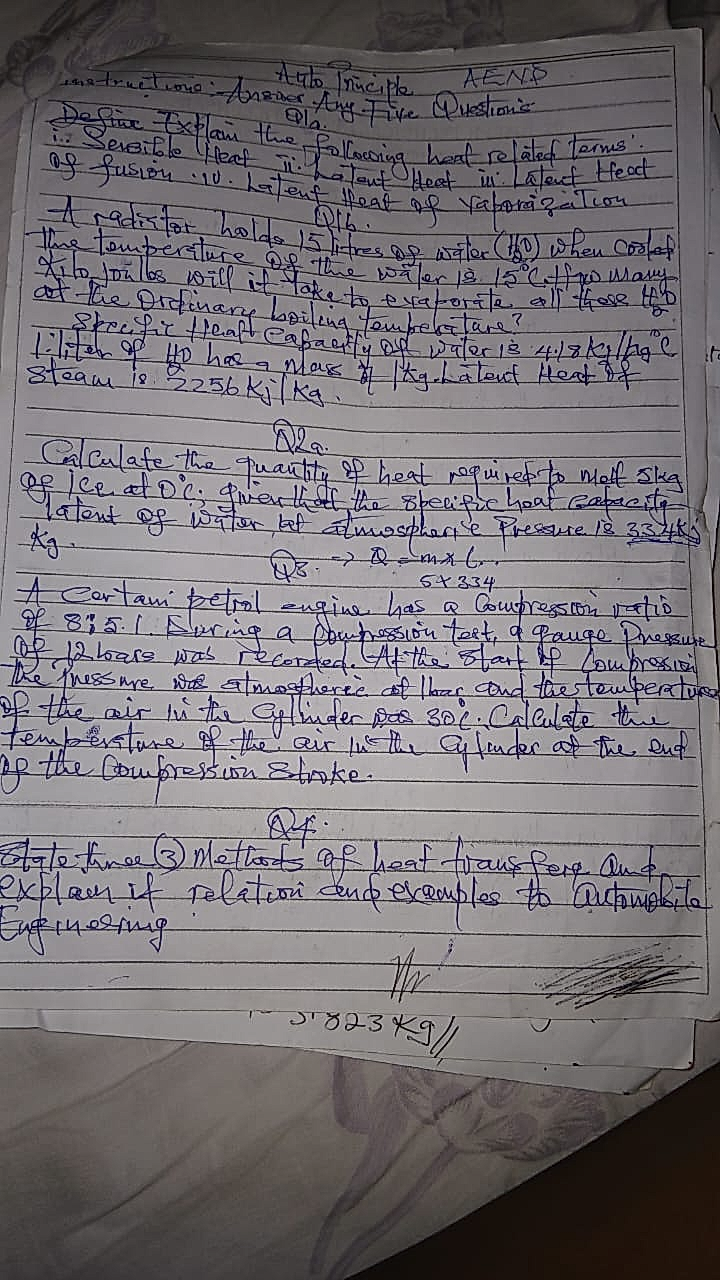 Auto Principle AEND
instructions:- Answer Any Five Questions
Q1a.
Define Explain the following heat related terms:
i. Sensible Heat ii. Latent Heat iii. Latent Heat
of fusion. iv. Latent Heat of Vaporization
Q1b.
A radiator holds 15 litres of water (H2O) when cooled
the temperature of the water is 15°C. How many
kilo Joules will it take to evaporate all those H2O
at the Ordinary boiling temperature?
Specific Heat Capacity of water is 4.18 Kj/kg°C
1. liter of H2O has a Mass of 1kg. Latent Heat of
Steam is 2256 Kj/kg.
Q2a.
Calculate the quantity of heat required to melt 5kg
of Ice at 0°C. given that the specific heat capacity
latent of water at atmospheric Pressure is 334Kj
Kg.
Q3. → Q = m x L
5 x 334
A Certain petrol engine has a Compression ratio
of 8:5.1. During a Compression test, a gauge Pressure
of 12 bars was recorded. At the start of Compression
the Pressure was atmospheric at 1bar and the temperature
of the air in the Cylinder was 30°C. Calculate the
temperature of the air in the Cylinder at the end
of the Compression Stroke.
Q4.
State three (3) Methods of heat transfere and
explain it relation and examples to Automobile
Engineering
823 Kg//